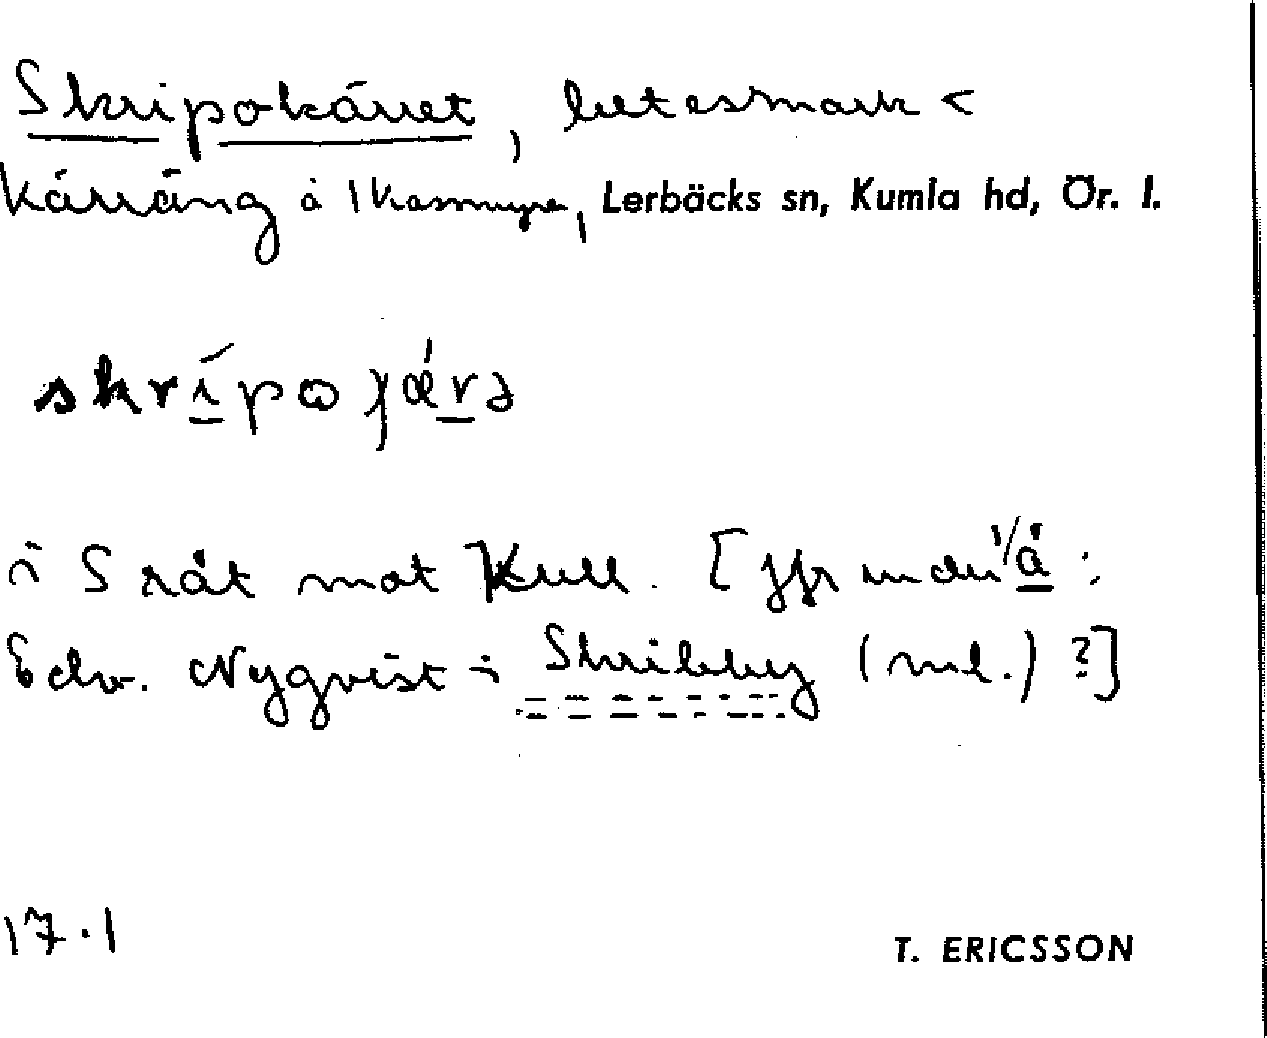 Skripokärret, betesmark <
Kärräng å 1 Kasmyra, Lerbäcks sn, Kumla hd, Ör. l.
skrípo jǽrə
i S råt mot Kull. [jfr under 1/å:
Edv. Nyqvist i Skribby (ml.) ?]
17.1
T. ERICSSON